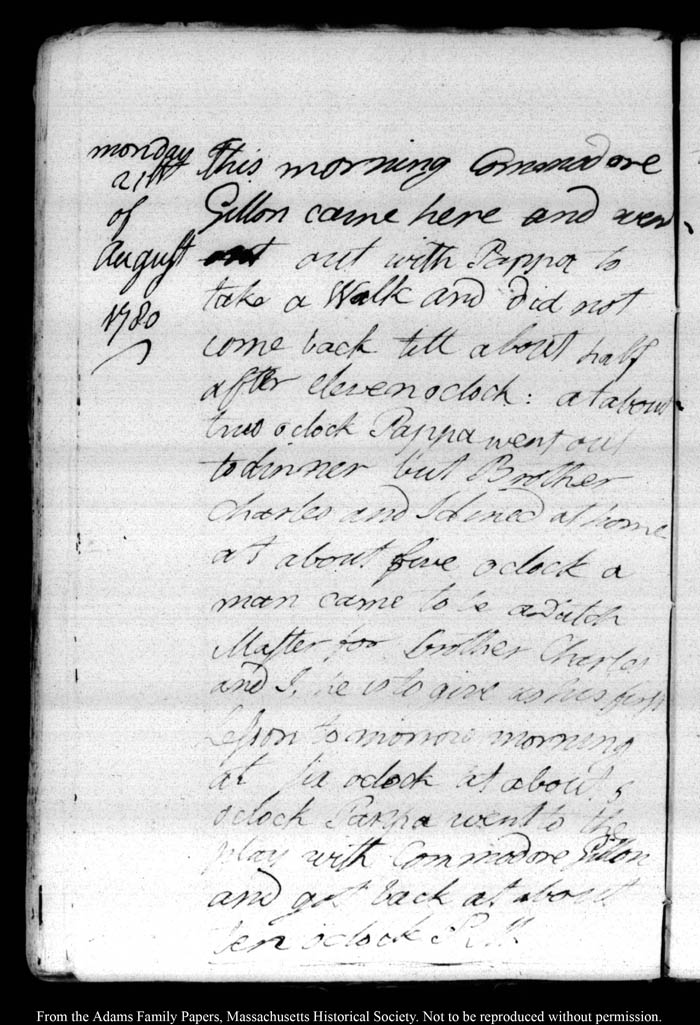 monday
21st
of
August
1780
this morning Commodore
Gillon came here and wen
out with Pappa to
take a Walk and did not
come back till about half
after eleven oclock : at about
two oclock Pappa went out
to dinner but Brother
Charles and I dined at home
at about five oclock a
man came to be a Dutch
Master for brother Charles
and I, he is to give us his first
Lesson to morrow morning
at six oclock at about
oclock Pappa went to the
play with Commodore Gillon
and got back at about
ten oclock P.M.
From the Adams Family Papers, Massachusetts Historical Society. Not to be reproduced without permission.